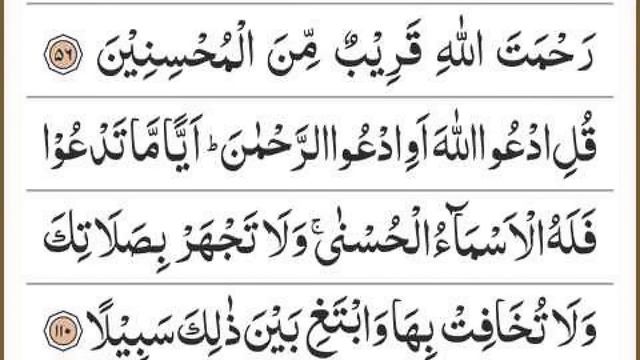 رَحْمَتَ اللّٰهِ قَرِيْبٌ مِّنَ الْمُحْسِنِيْنَ ۝۵۶
قُلِ ادْعُوا اللّٰهَ اَوِ ادْعُوا الرَّحْمٰنَ ؕ اَيًّا مَّا تَدْعُوْا
فَلَهُ الْاَسْمَآءُ الْحُسْنٰى ۚ وَلَا تَجْهَرْ بِصَلَاتِكَ
وَلَا تُخَافِتْ بِهَا وَابْتَغِ بَيْنَ ذٰلِكَ سَبِيْلًا ۝۱۱۰